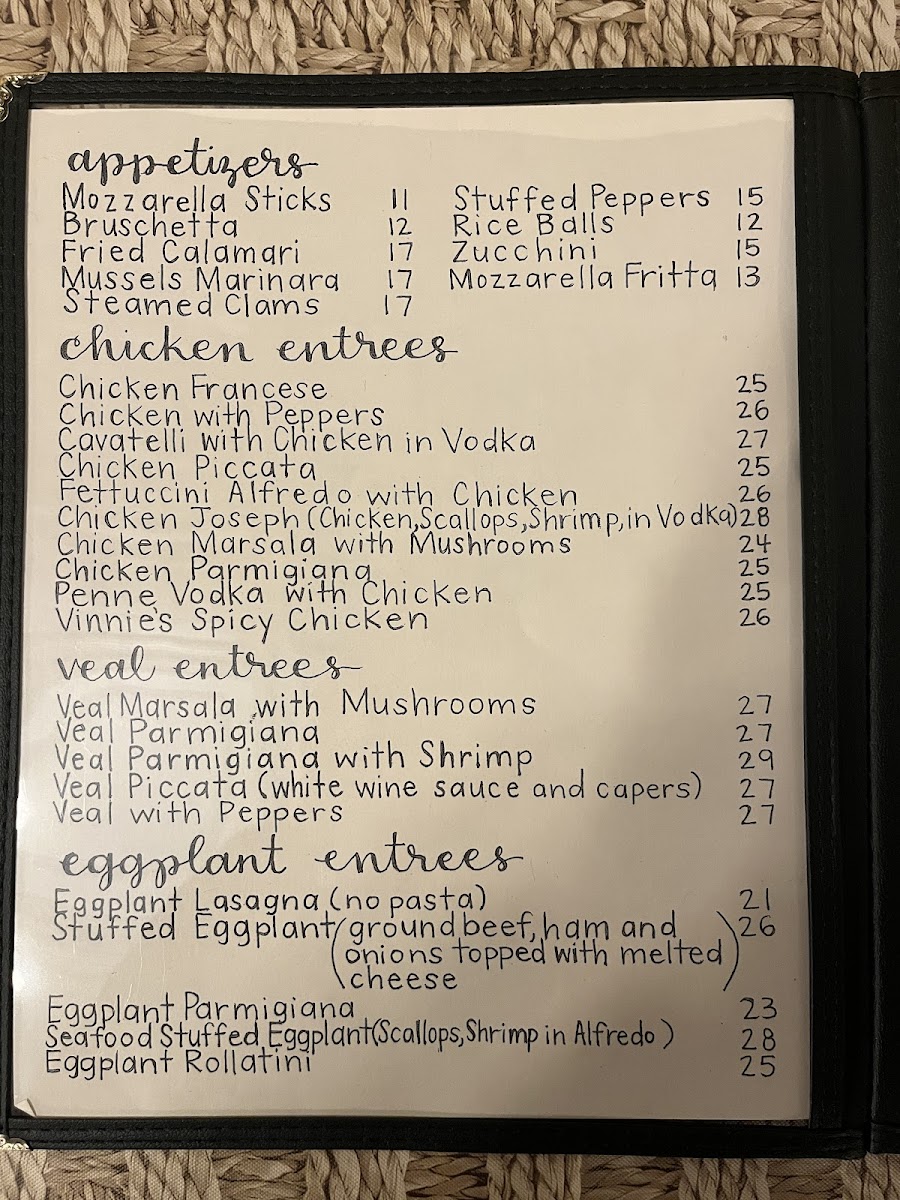 appetizers
Mozzarella Sticks 11 Stuffed Peppers 15
Bruschetta 12 Rice Balls 12
Fried Calamari 17 Zucchini 15
Mussels Marinara 17 Mozzarella Fritta 13
Steamed Clams 17
chicken entrees
Chicken Francese 25
Chicken with Peppers 26
Cavatelli with Chicken in Vodka 27
Chicken Piccata 25
Fettuccini Alfredo with Chicken 26
Chicken Joseph (Chicken, Scallops, Shrimp, in Vodka) 28
Chicken Marsala with Mushrooms 24
Chicken Parmigiana 25
Penne Vodka with Chicken 25
Vinnie's Spicy Chicken 26
veal entrees
Veal Marsala with Mushrooms 27
Veal Parmigiana 27
Veal Parmigiana with Shrimp 29
Veal Piccata (white wine sauce and capers) 27
Veal with Peppers 27
eggplant entrees
Eggplant Lasagna (no pasta) 21
Stuffed Eggplant (ground beef, ham and 26
onions topped with melted
cheese)
Eggplant Parmigiana 23
Seafood Stuffed Eggplant (Scallops, Shrimp in Alfredo) 28
Eggplant Rollatini 25